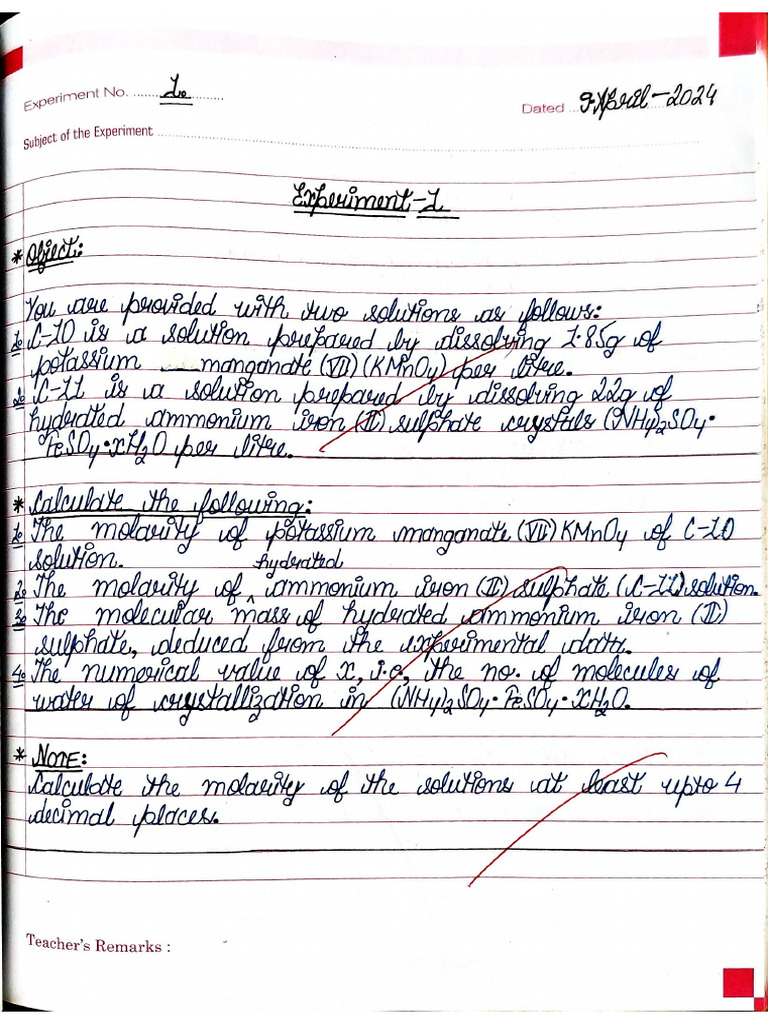 Experiment No. 1.
Dated 9 April-2024
Subject of the Experiment
Experiment-1
* Object:
You are provided with two solutions as follows:
1. C-10 is a solution prepared by dissolving 1.85g of
potassium manganate (VII) (KMnO4) per litre.
2. C-11 is a solution prepared by dissolving 22g of
hydrated ammonium iron (II) sulphate crystals (NH4)2SO4•
FeSO4•xH2O per litre.
* Calculate the following:
1. The molarity of potassium manganate (VII) KMnO4 of C-10
solution.
2. The molarity of hydrated ammonium iron (II) sulphate (C-11) solution.
3. The molecular mass of hydrated ammonium iron (II)
sulphate, deduced from the experimental data.
4. The numerical value of x, i.e, the no. of molecules of
water of crystallization in (NH4)2SO4•FeSO4•xH2O.
* NOTE:
Calculate the molarity of the solutions at least upto 4
decimal places.
Teacher's Remarks :